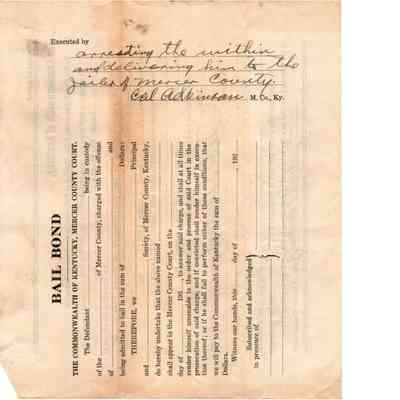 Executed by
arresting the within
and delivering him to the
jailer of Mercer County.
Cal Adkinson M. Co., Ky.
BAIL BOND
THE COMMONWEALTH OF KENTUCKY, MERCER COUNTY COURT.
The Defendant being in custody
of the of Mercer County, charged with the offense
of and
being admitted to bail in the sum of Dollars:
THEREFORE, we Principal
and Surety, of Mercer County, Kentucky,
do hereby undertake that the above named
shall appear in the Mercer County Court, on the
day of 192 to answer said charge, and shall at all times
render himself amenable to the order and process of said Court in the
prosecution of said charge, and if convicted shall render himself in execu-
tion thereof; or if he shall fail to perform either of these conditions, that
we will pay to the Commonwealth of Kentucky the sum of
Dollars.
Witness our hands, this day of , 192
Subscribed and acknowledged
in presence of